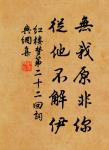 無我原非你
從他不解伊
紅樓夢第二十二回詞
典細集